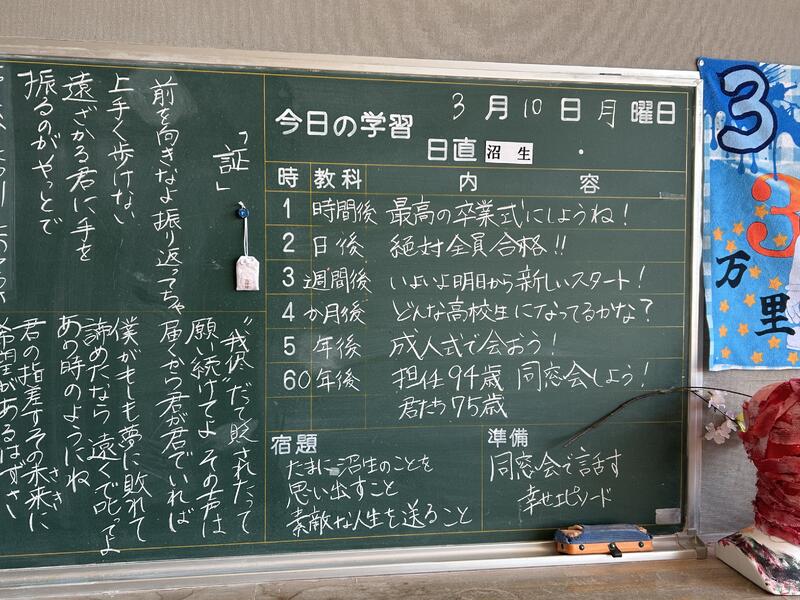 3月10日月曜日
今日の学習
日直 沼生 ・
時 教科 内容
1 時間後 最高の卒業式にしようね!
2 日後 絶対全員合格!!
3 週間後 いよいよ明日から新しいスタート!
4 か月後 どんな高校生になってるかな?
5 年後 成人式で会おう!
60 年後 担任94歳 同窓会しよう!
君たち75歳
宿題
たまに沼生のことを
思い出すこと
素敵な人生を送ること
準備
同窓会で話す
幸せエピソード
「証」
前を向きなよ振り返ってちゃ
上手く歩けない
遠ざかる君に手を
振るのがやっとで
"我侭"だって貶されたって
願い続けてよ その声は
届くから君が君でいれば
僕がもしも夢に敗れて
諦めたなら 遠くで叱ってよ
あの時のようにね
君の指差すその未来に
さき
希望があるはずさ
3
3
万里